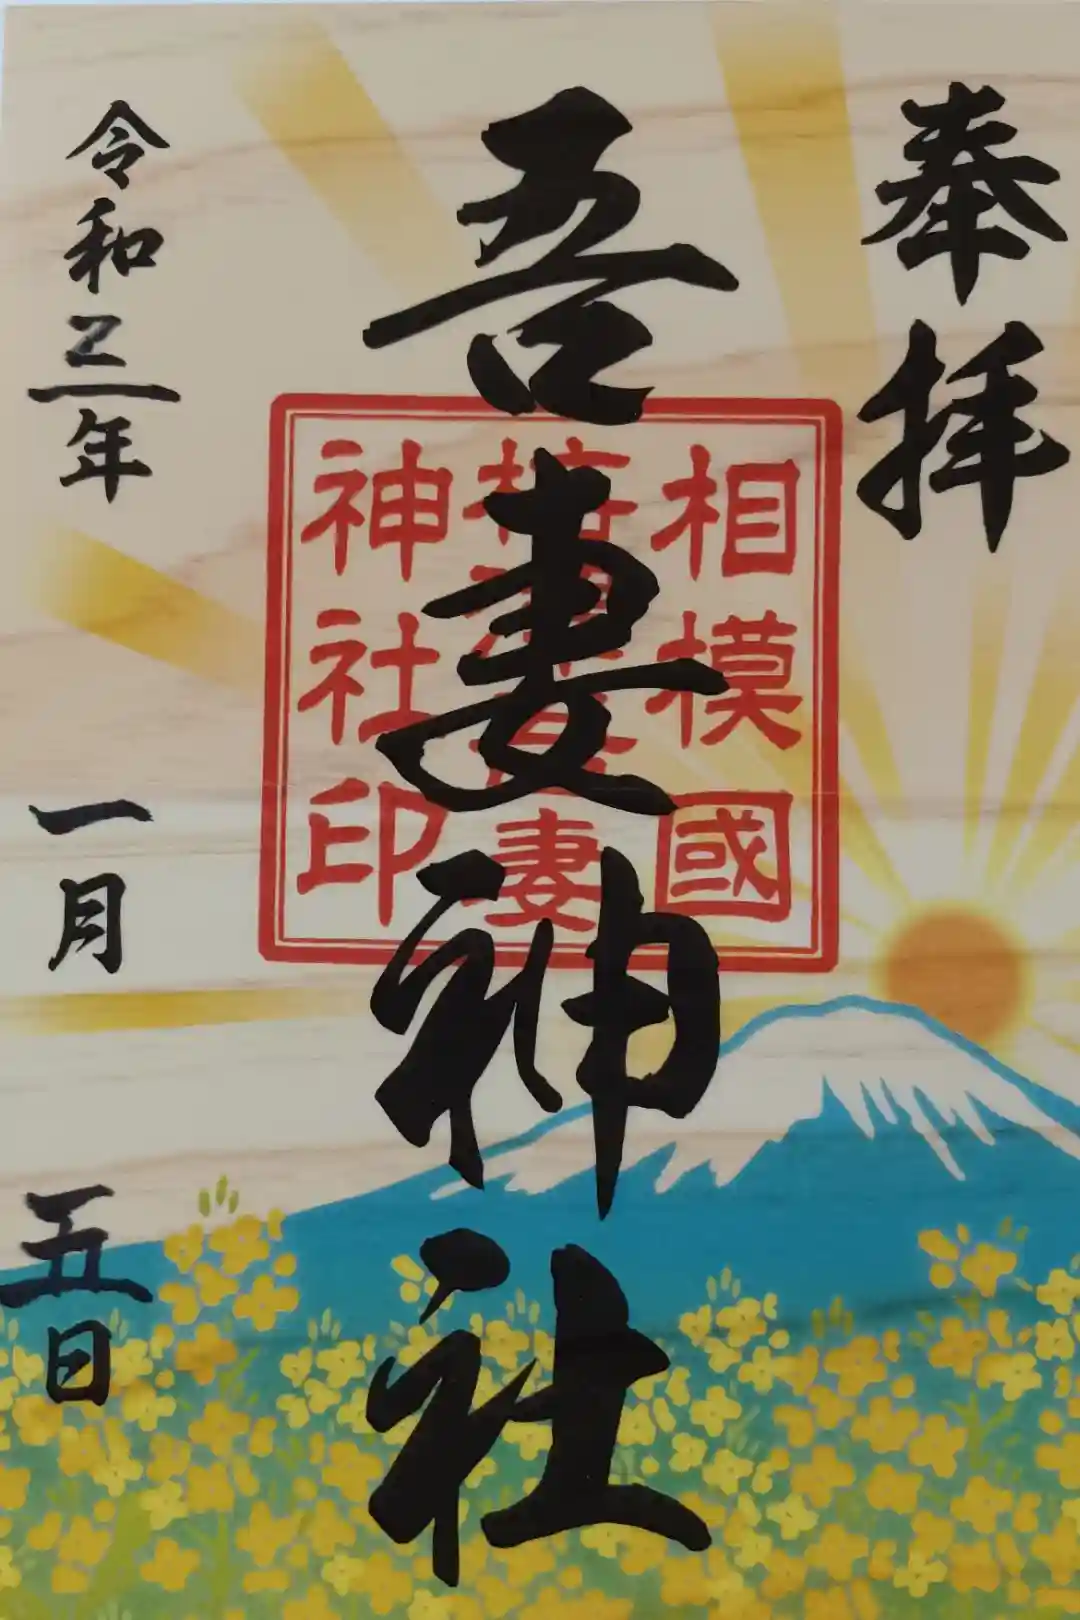 奉拝
吾妻神社
相模國
妻
神社印
令和三年
一月
五日